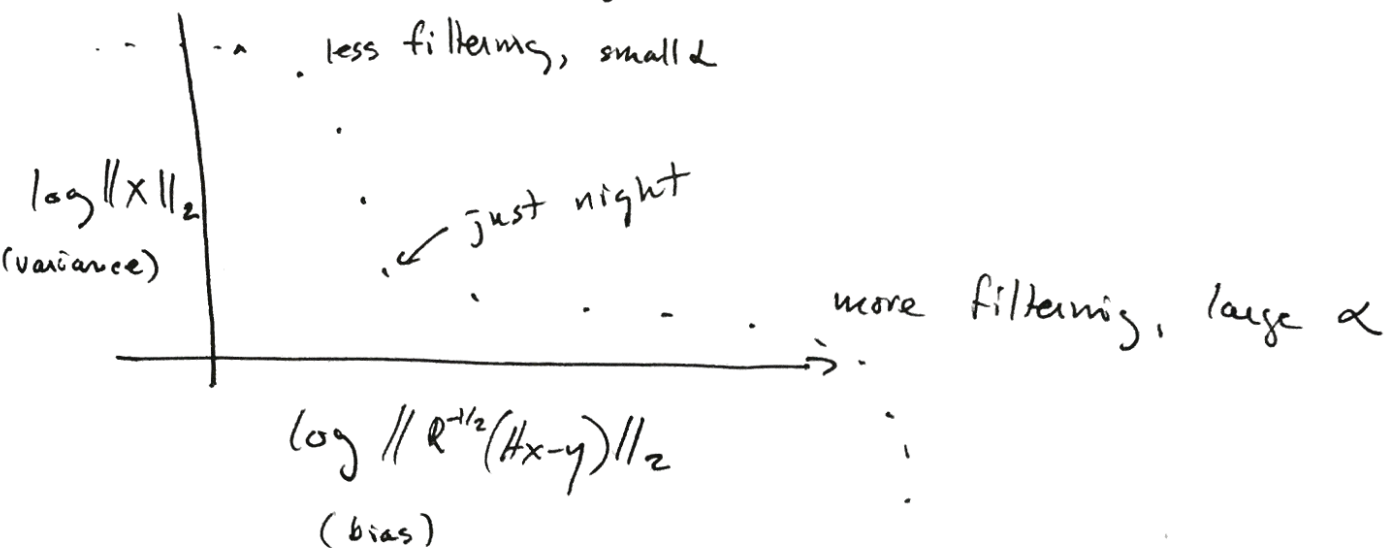 less filtering, small α
log ||x||₂
(variance)
just right
more filtering, large α
log || R^{-1/2}(Hx-y)||₂
(bias)